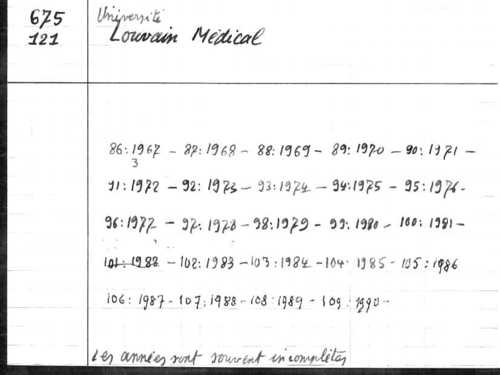 675
121
Université
Louvain Médical
86:1967 - 87:1968 - 88:1969 - 89:1970 - 90:1971 -
3
91:1972 - 92:1973 - 93:1974 - 94:1975 - 95:1976 -
96:1977 - 97:1978 - 98:1979 - 99:1980 - 100:1981 -
101:1982 - 102:1983 - 103:1984 - 104:1985 - 105:1986
106:1987 - 107:1988 - 108:1989 - 109:1990 -
Les années sont souvent incomplètes